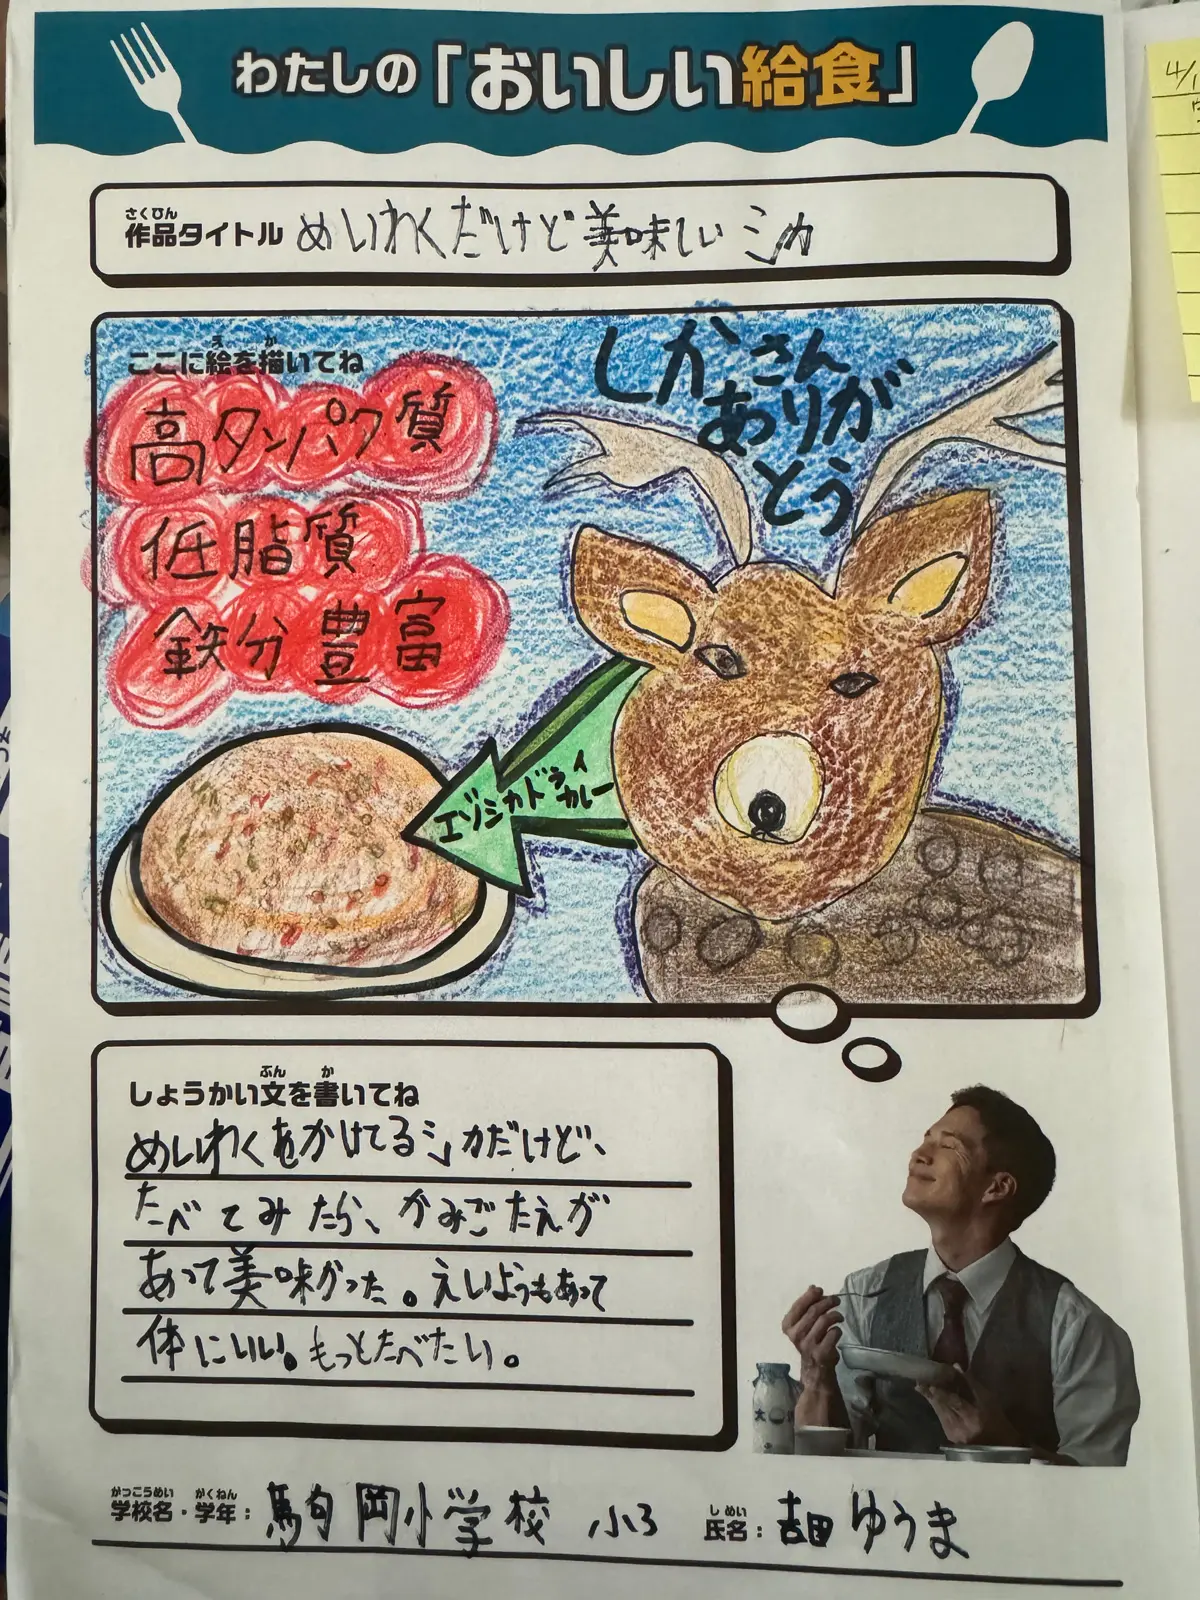 わたしの「おいしい給食」
さくひん
作品タイトル めいわくだけど美味しいシカ
え か
ここに絵を描いてね
しかさん
ありが
とう
高タンパク質
低脂質
鉄分豊富
エゾシカドライ
カレー
ぶん か
しょうかい文を書いてね
めいわくをかけてるシカだけど、
たべてみたら、かみごたえが
あって美味かった。えいようもあって
体にいい。もっとたべたい。
がっこうめい がくねん しめい
学校名・学年: 駒岡小学校 小3 氏名: 吉田ゆうま
4/1